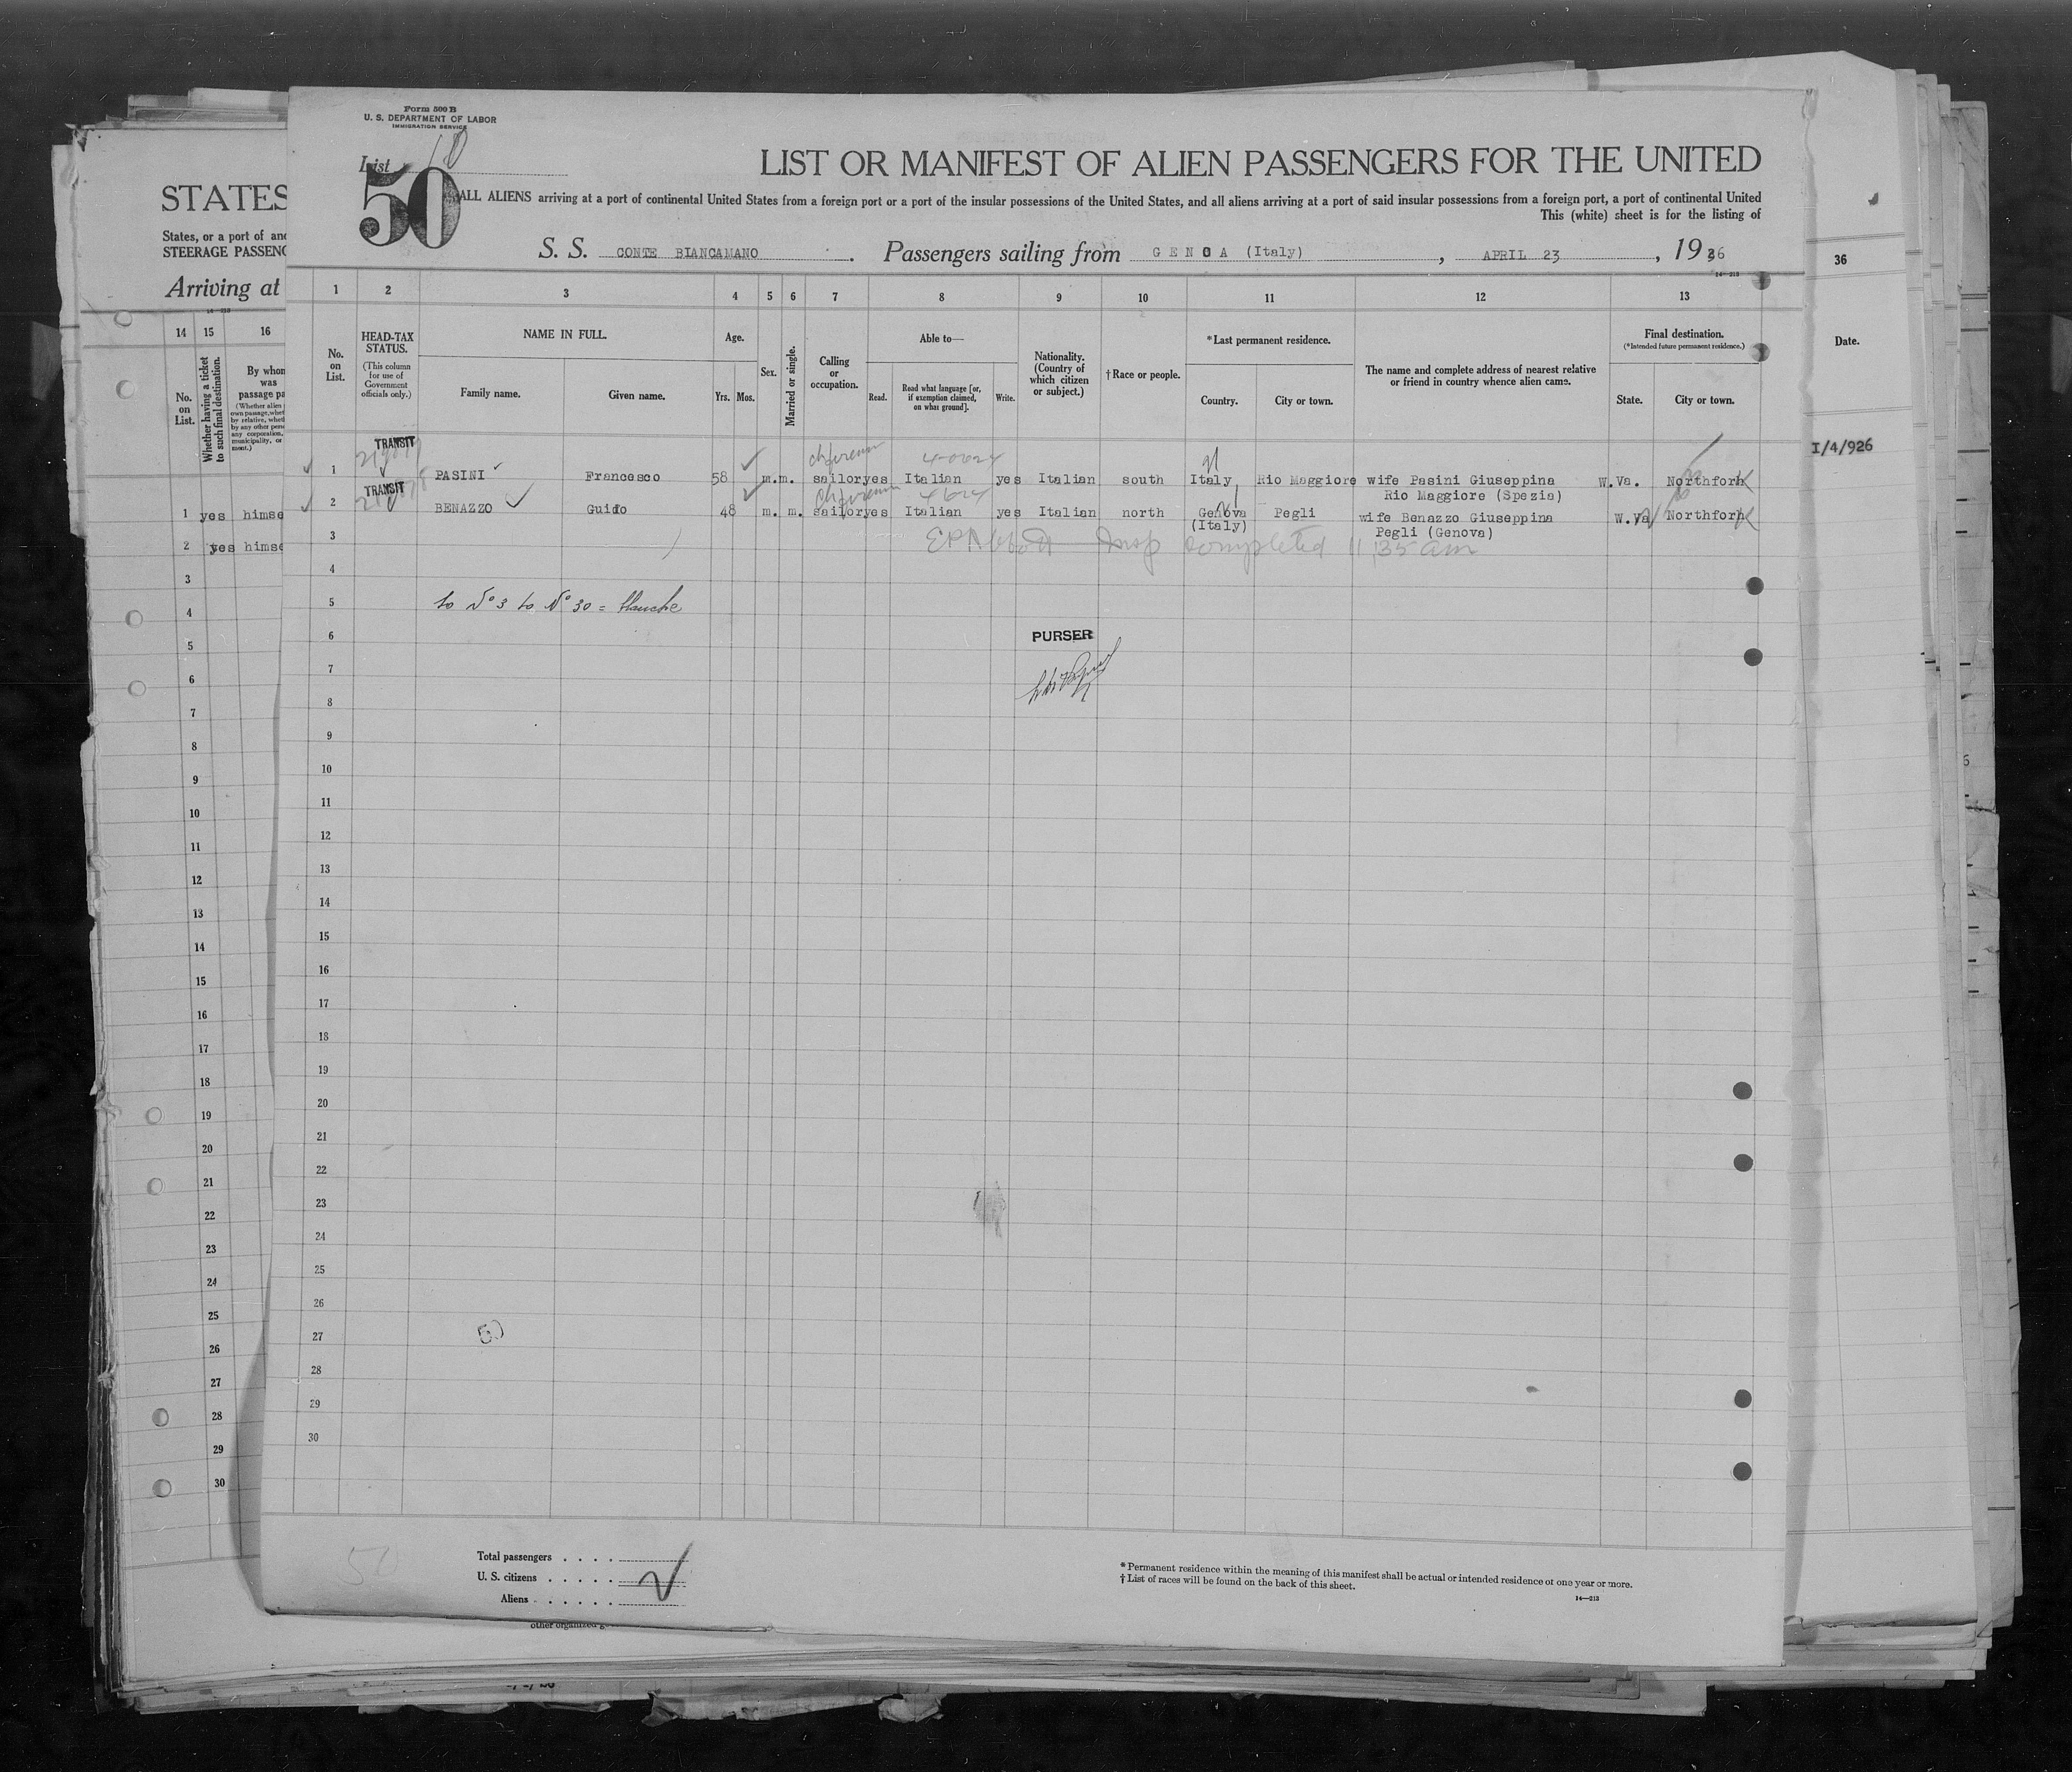 Form 500 B
U. S. DEPARTMENT OF LABOR
IMMIGRATION SERVICE
List 10
50
LIST OR MANIFEST OF ALIEN PASSENGERS FOR THE UNITED
ALL ALIENS arriving at a port of continental United States from a foreign port or a port of the insular possessions of the United States, and all aliens arriving at a port of said insular possessions from a foreign port, a port of continental United
This (white) sheet is for the listing of
S. S. CONTE BIANCAMANO . Passengers sailing from GENOA (Italy) , APRIL 23 , 1936
STATES
States, or a port of ano
STEERAGE PASSENG
Arriving at
14 15 16
No. on List.
Whether having a ticket to such final destination.
By whom was passage pa
1 yes himse
2 yes himse
3
4
5
6
7
8
9
10
11
12
13
14
15
16
17
18
19
20
21
22
23
24
25
26
27
28
29
30
36
Date.
I/4/926
1 2 3 4 5 6 7 8 9 10 11 12 13
No. on List.
HEAD-TAX STATUS.
(This column for use of Government officials only.)
NAME IN FULL.
Family name. Given name.
Age.
Yrs. Mos.
Sex.
Married or single.
Calling or occupation.
Able to—
Read. Read what language [or, if exemption claimed, on what ground]. Write.
Nationality. (Country of which citizen or subject.)
†Race or people.
*Last permanent residence.
Country. City or town.
The name and complete address of nearest relative or friend in country whence alien came.
Final destination.
(*Intended future permanent residence.)
State. City or town.
TRANSIT
1 PASINI Francesco 58 m. m. sailor yes Italian yes Italian south Italy Rio Maggiore wife Pasini Giuseppina W.Va. Northfork
Rio Maggiore (Spezia)
TRANSIT
2 BENAZZO Guido 48 m. m. sailor yes Italian yes Italian north Genova Pegli wife Benazzo Giuseppina W.Va Northfork
(Italy) Pegli (Genova)
3 Insp completed 11 35 am
4
5 to N° 3 to N° 30 = blanche
6 PURSER
7
8
9
10
11
12
13
14
15
16
17
18
19
20
21
22
23
24
25
26
27 50
28
29
30
50
Total passengers . . . .
U. S. citizens . . . . .
Aliens . . . . . .
* Permanent residence within the meaning of this manifest shall be actual or intended residence of one year or more.
† List of races will be found on the back of this sheet.
14—213